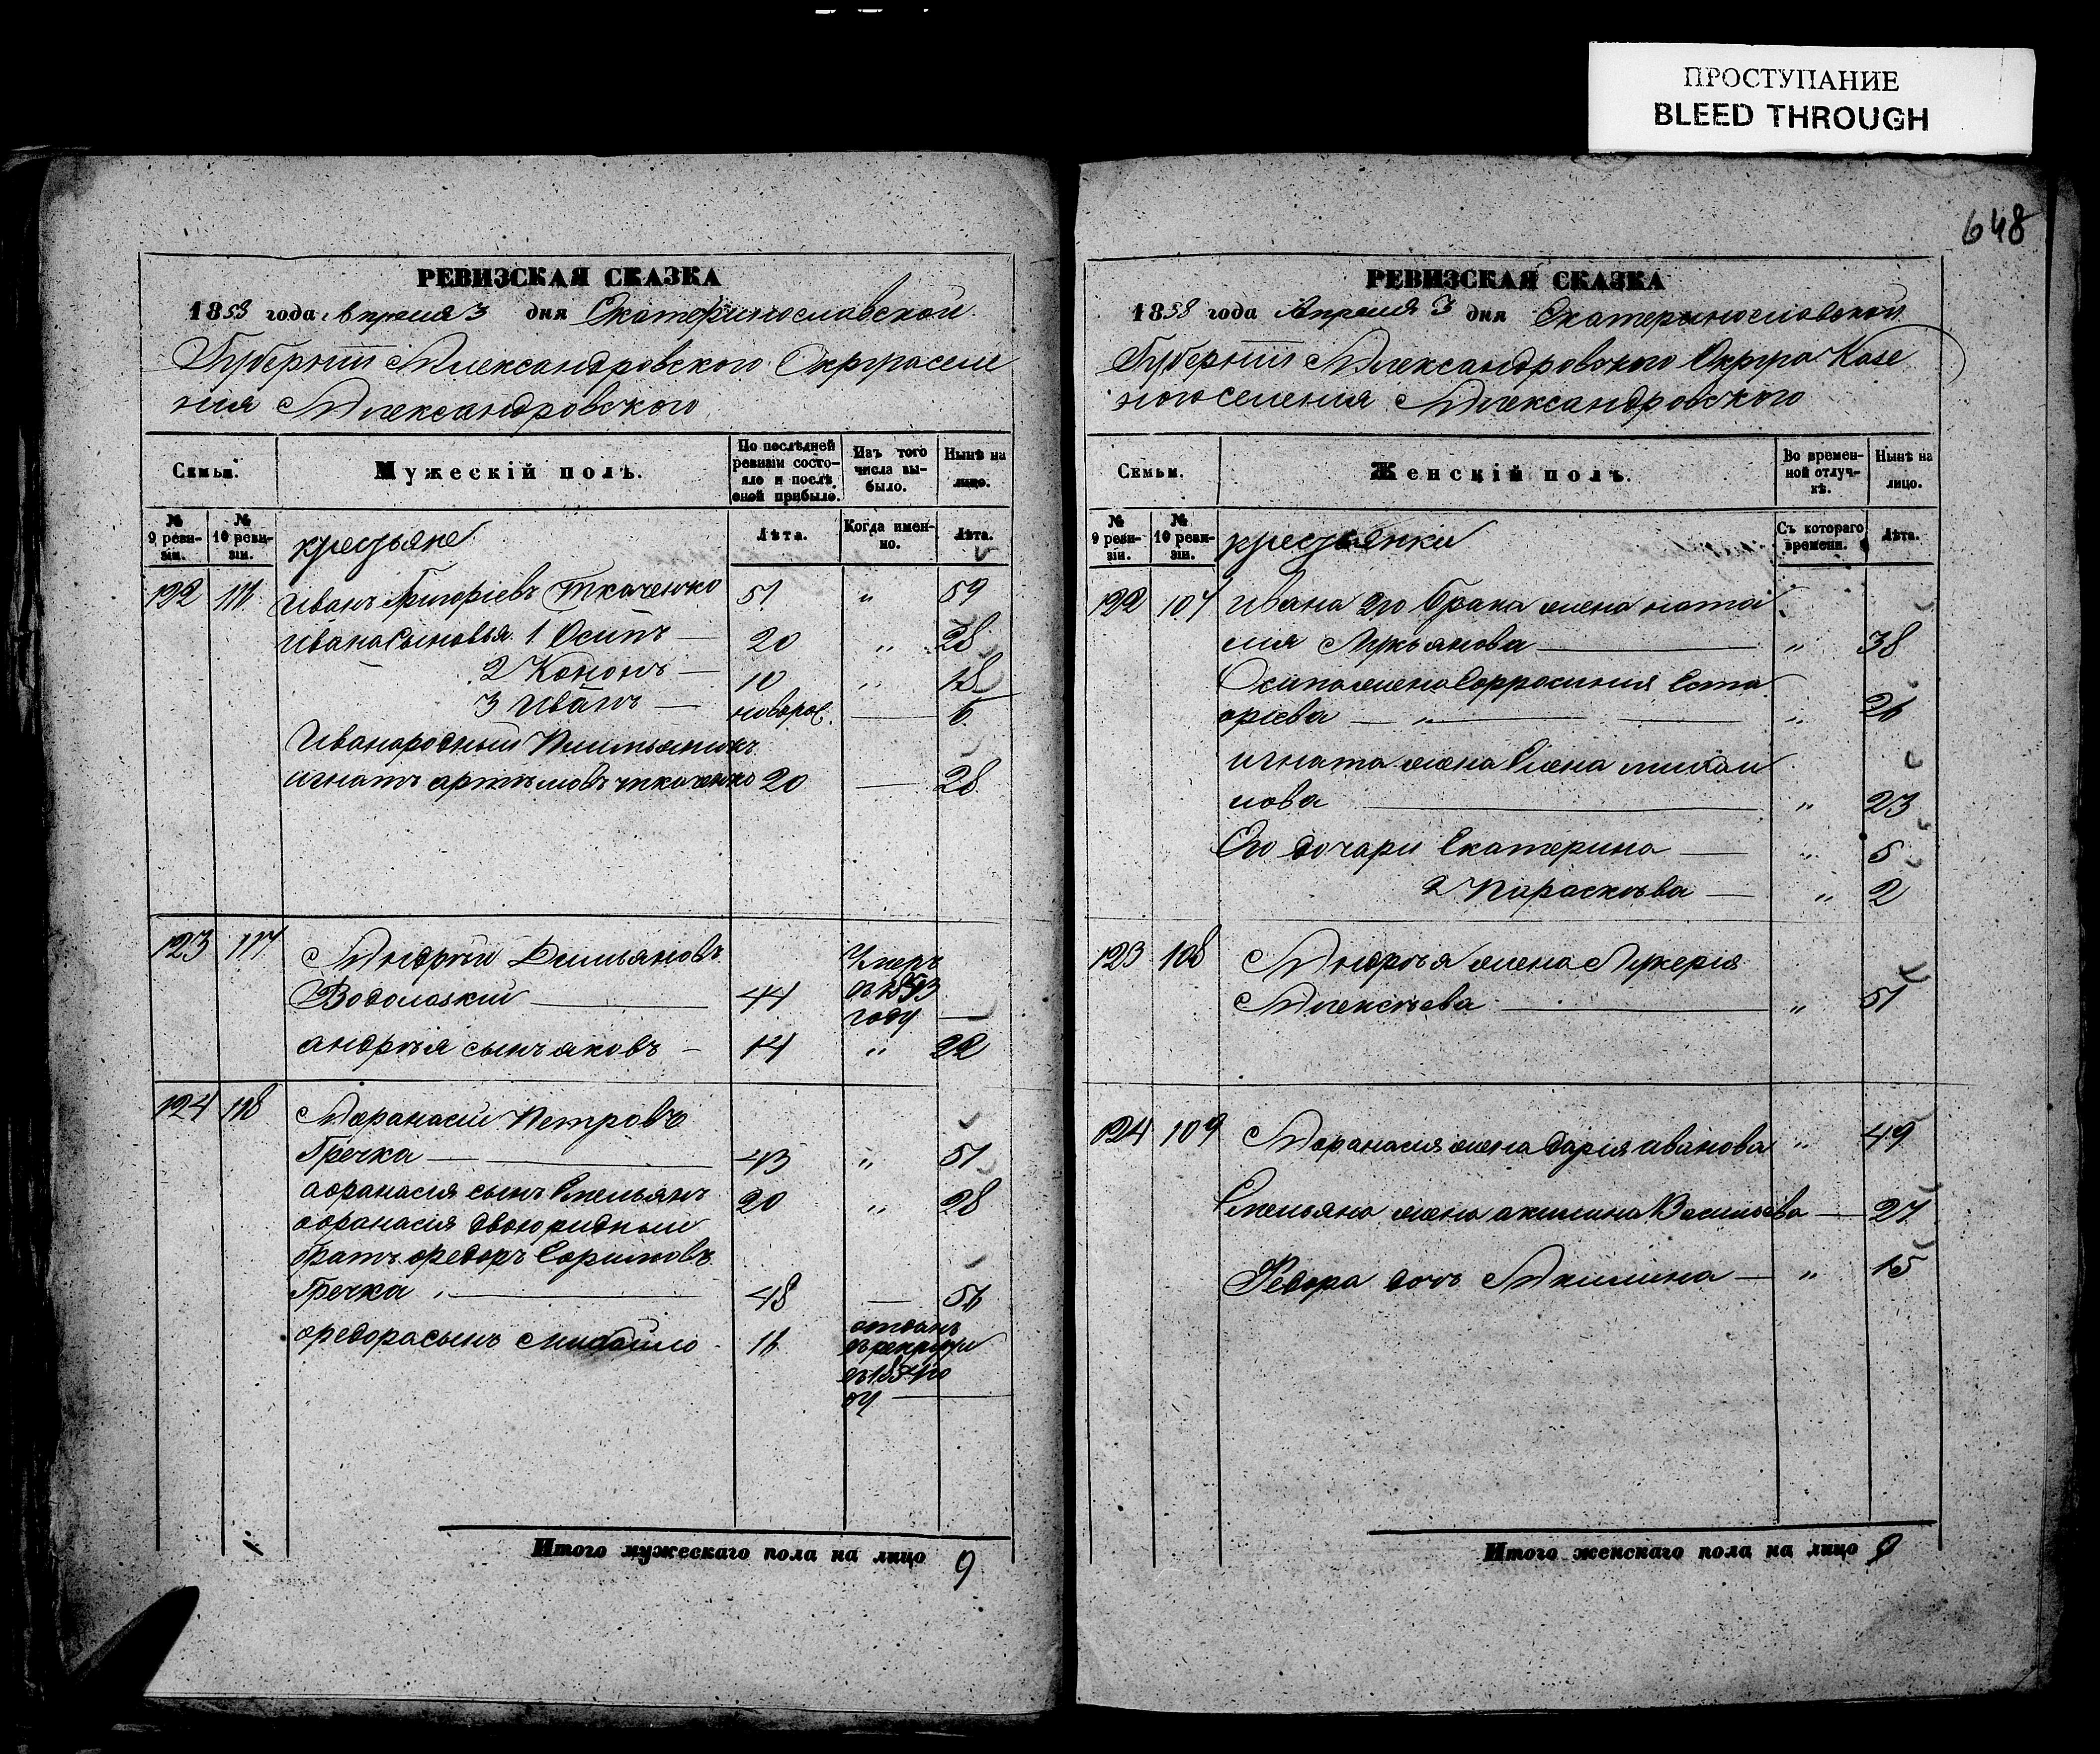 ПРОСТУПАНИЕ
BLEED THROUGH
648
РЕВИЗСКАЯ СКАЗКА
1858 года Апреля 3 дня Екатеринославской
Губернии Александровского Округа селе
ния Александровского
Семьи. Мужескій полъ. По послѣдней ревизіи состояло и послѣ оной прибыло. Изъ того числа выбыло. Нынѣ на лицо.
№ 9 ревизіи. № 10 ревизіи. крестьяне Лѣта. Когда именно. Лѣта.
122 116 Иванъ Григоріевъ Ткаченко 51 " 59
Ивана сыновья 1 Осипъ — 20 " 28
2 Кононъ — 10 " 18
3 Иванъ — новорož. — 6
Ивана родный племянникъ
игнатъ артемовъ ткаченко 20 — 28
123 117 Андрѣй Димьяновъ Умеръ
Водолазкий — 44 въ 1853 году —
андрѣя сынъ яковъ — 14 " 22
124 118 Афанасий Петровъ
Гречка — 43 " 51
афанасия сынъ Емельянъ 20 " 28
афанасия двоюридный
братъ федоръ Ефимовъ
Гречка — 48 — 56
федора сынъ Михайло 16 отданъ
въ рекруты
въ 1854 го
ду —
Итого мужескаго пола на лицо 9
РЕВИЗСКАЯ СКАЗКА
1858 года Апреля 3 дня Екатеринославской
Губернии Александровского Округа Казе
ного селения Александровского
Семьи. Женскій полъ. Во временной отлучкѣ. Нынѣ на лицо.
№ 9 ревизіи. № 10 ревизіи. крестьянки Съ котораго времени. Лѣта.
122 107 Ивана 2го брака жена ната
лия Лукьянова — " 38
Осипа жена Ефросиния Еста
фиева — " — " 26
игната жена Елена михаи
лова — " 23
Его дочари Екатерина — " 5
2 Парасковва — " 2
123 108 Андрѣя жена Лукерия
Алексѣева — " 51
124 109 Афанасия жена дария иванова " 49
Емельяна жена акилина Васильева — 27
Федора дочь Акилина — " 15
Итого женскаго пола на лицо 9